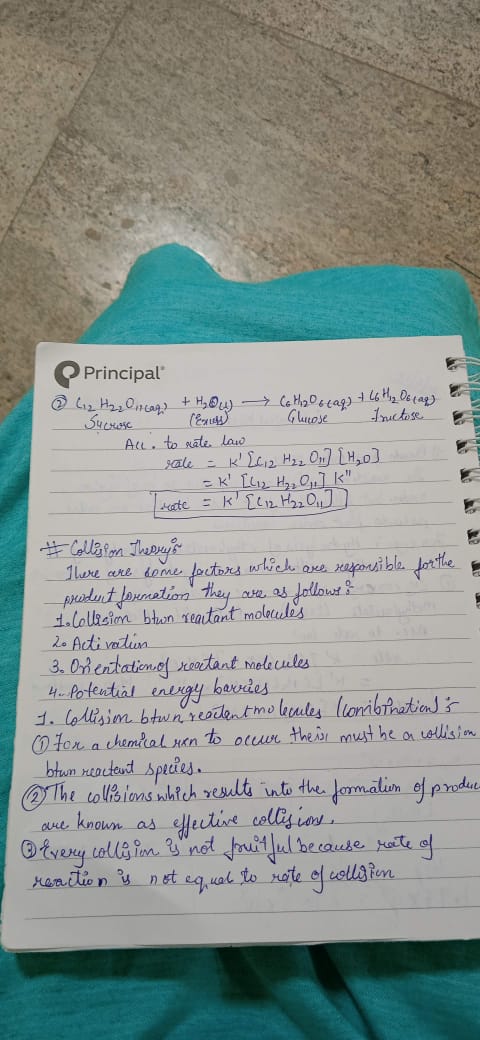 Principal®
② C12 H22 O11(aq) + H2O(l) → C6H2O6(aq) + C6H2O6(aq)
Sucrose (Excess) Glucose Fructose
Acc. to rate law
rate = K' [C12 H22 O11] [H2O]
= K' [C12 H22 O11] K"
rate = K' [C12 H22 O11]
# Collision Theory:
There are some factors which are responsible for the
product formation they are as follows:
1. Collision btwn reactant molecules
2. Activation
3. Orientation of reactant molecules
4. Potential energy barries
1. Collision btwn reactant molecules (combination):
① For a chemical rxn to occur their must be a collision
btwn reactant species.
② The collisions which results into the formation of produc
are known as effective collisions.
③ Every collision is not fruitful because rate of
reaction is not equal to rate of collision